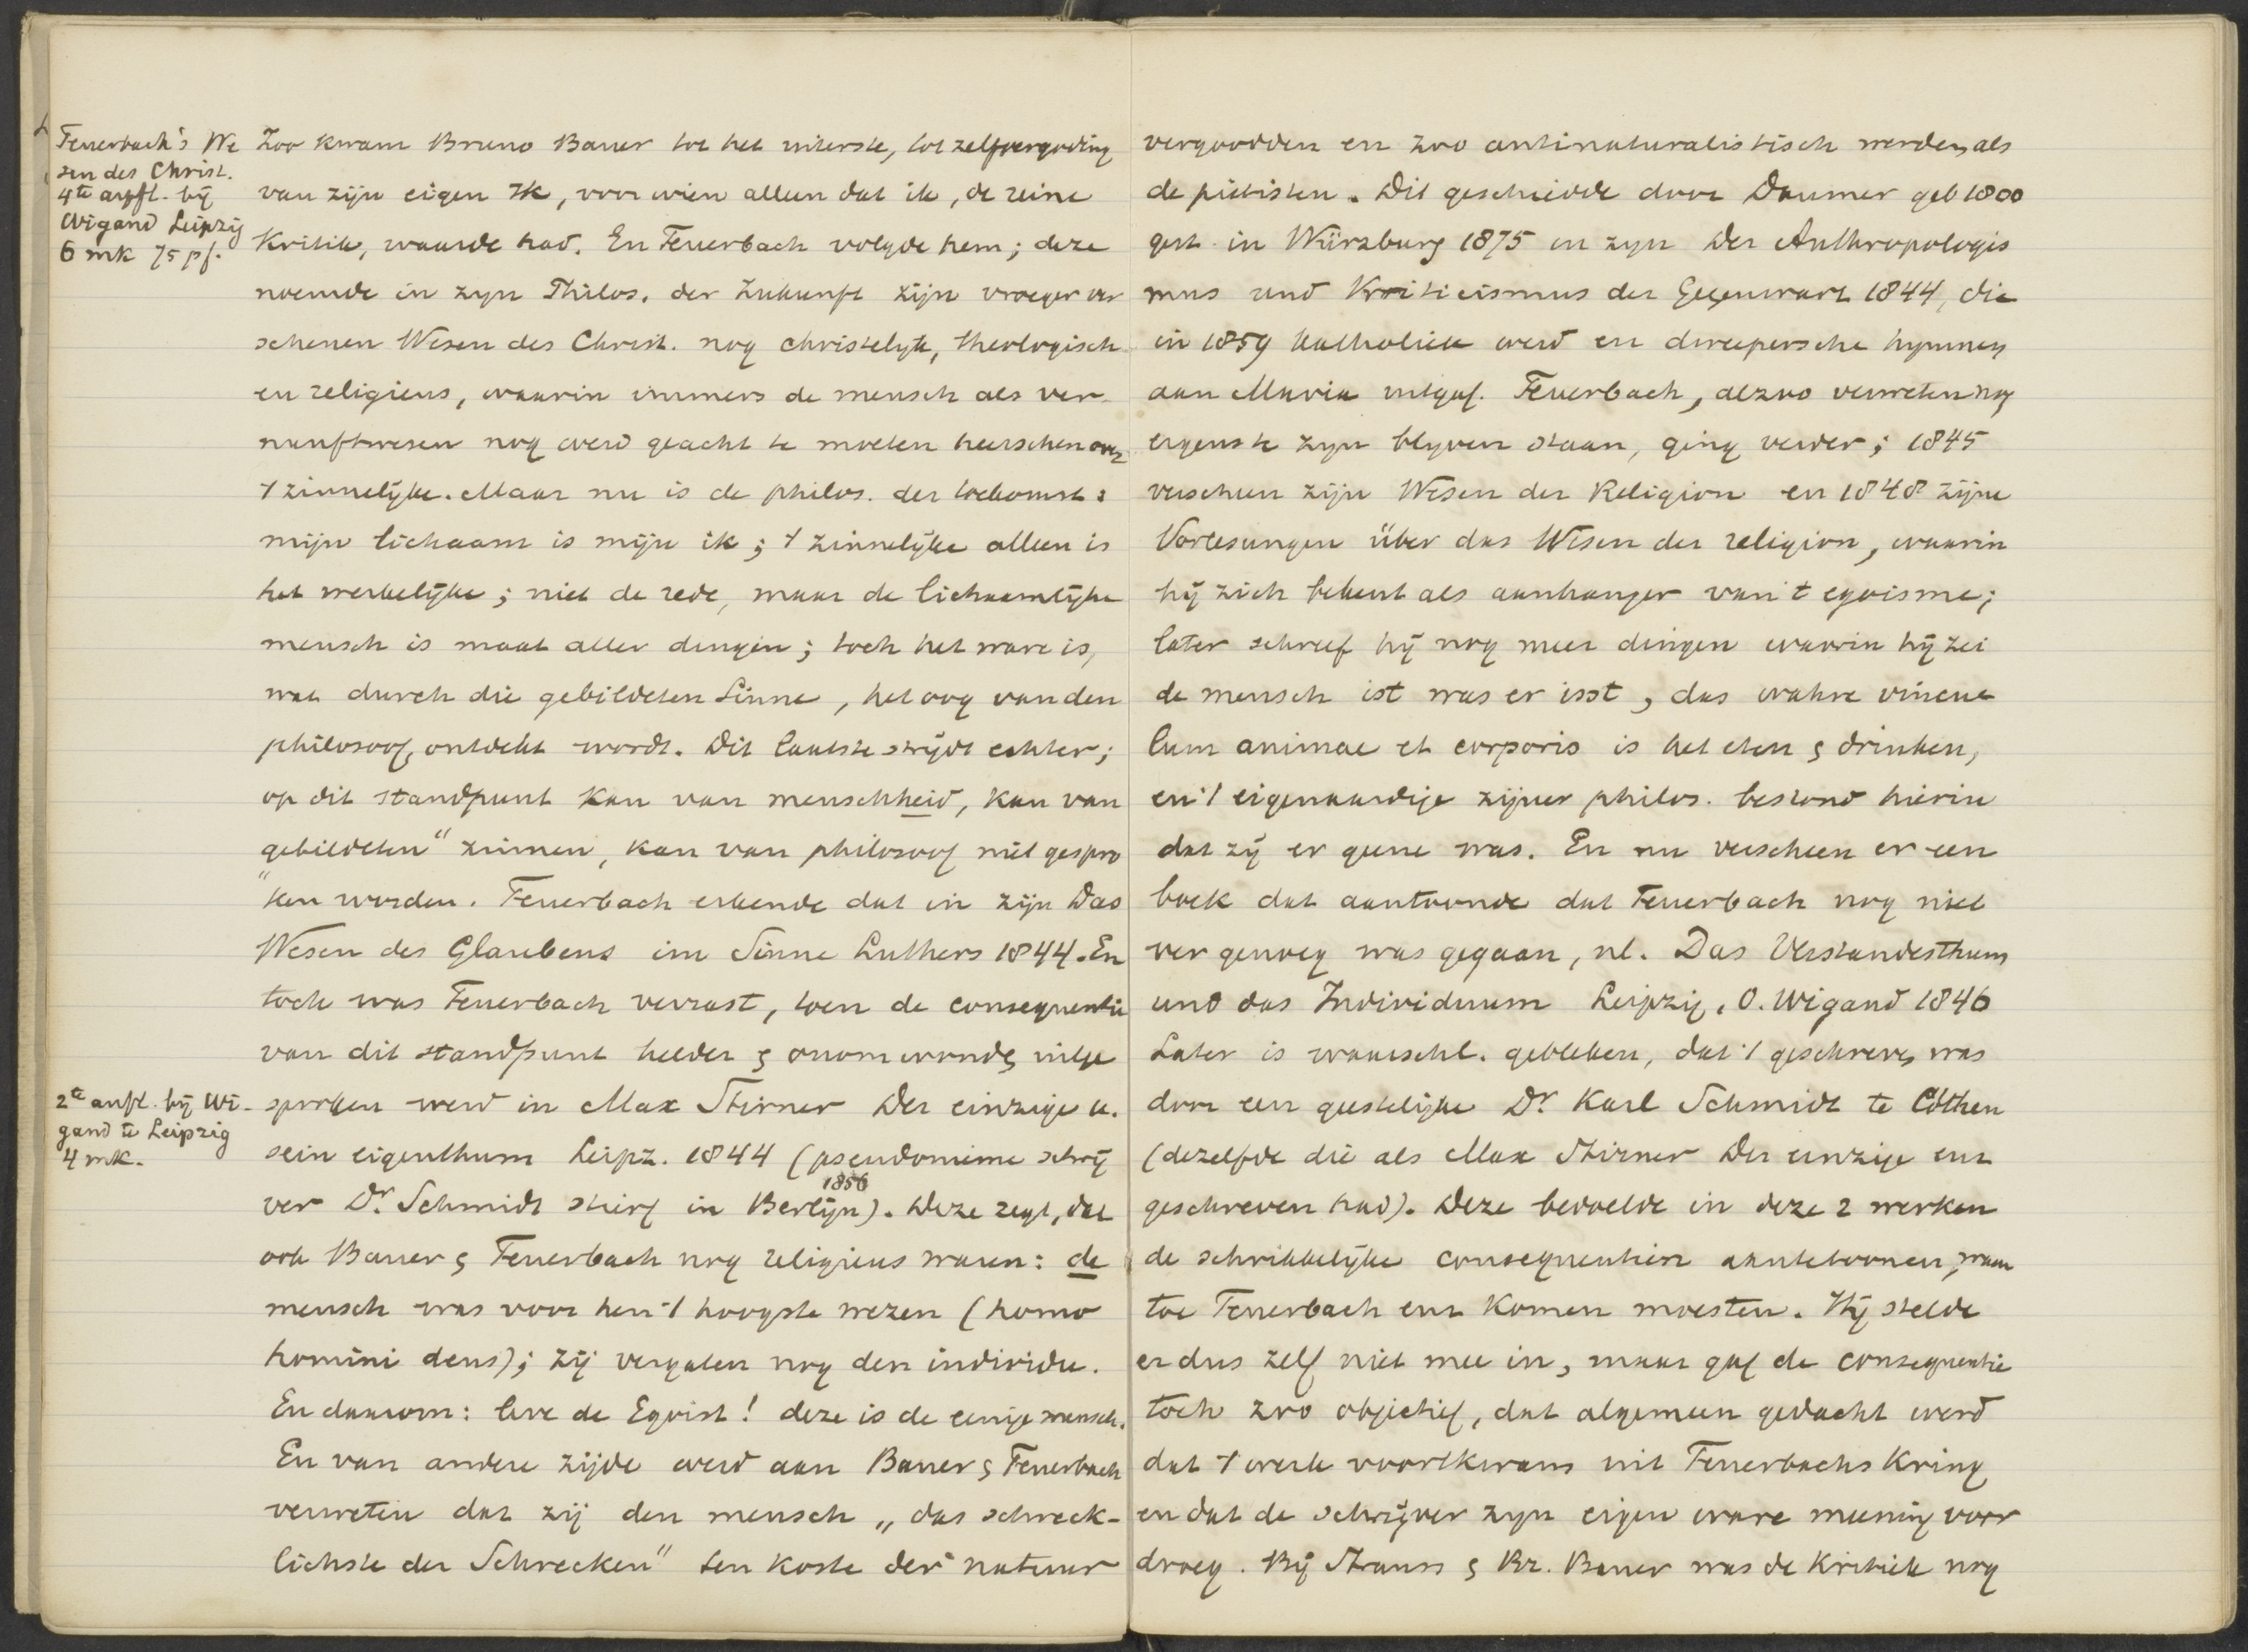 Feuerbach's We
sen des Christ.
4te aufl. bij
Wigand Leipzig
6 mk 75 pf.
Zoo kwam Bruno Bauer tot het uiterste, tot zelfvergoding
van zijn eigen Ik, voor wien alleen dat ik, de reine
Kritik, waarde had. En Feuerbach volgde hem; deze
noemde in zijn Philos. der Zukunft zijn vroeger ver
schenen Wesen des Christ. nog christelijk, theologisch
en religieus, waarin immers de mensch als ver-
nunftwesen nog werd geacht te moeten heerschen over
't zinnelijke. Maar nu is de philos. der toekomst:
mijn lichaam is mijn ik; 't zinnelijke alleen is
het werkelijke; niet de rede, maar de lichaamlijke
mensch is maat aller dingen; toch het ware is,
wat durch die gebildeten Sinne, het oog van den
philosoof, ontdekt wordt. Dit laatste strijdt echter;
op dit standpunt kan van menschheid, kan van
„gebildeten“ zinnen, kan van philosoof niet gespro
ken worden. Feuerbach erkende dat in zijn Das
Wesen des Glaubens im Sinne Luthers 1844. En
toch was Feuerbach verrast, toen de consequentie
van dit standpunt helder & onomwonden uitge
2te aufl. bij Wi-
gand te Leipzig
4 mk.
sproken werd in Max Stirner Der einzige u.
sein eigenthum Leipz. 1844 (pseudonieme schrij
ver Dr. Schmidt stierf in Berlijn 1856). Deze zegt, dat
ook Bauer & Feuerbach nog religieus waren: de
mensch was voor hen 't hoogste wezen (homo
homini deus); zij vergaten nog den individu.
En daarom: leve de Egoist! deze is de eenige mensch.
En van andere zijde werd aan Bauer & Feuerbach
verweten dat zij den mensch „das schreck-
lichste der Schrecken“ ten koste der natuur
vergoodden en zoo antinaturalistisch werden, als
de piëtisten. Dit geschiedde door Daumer geb 1800
gest. in Würzburg 1875 in zijn Der Anthropologis
mus und Kriticismus der Gegenwart 1844, die
in 1859 katholiek werd en dweepersche hymnen
aan Maria uitgaf. Feuerbach, alzoo verweten nog
ergens te zijn blijven staan, ging verder; 1845
verscheen zijn Wesen der Religion en 1848 zijne
Vorlesungen über das Wesen der religion, waarin
hij zich bekent als aanhanger van 't egoisme;
later schreef hij nog meer dingen waarin hij zei
de mensch ist was er isst, das wahre vincu
lum animae et corporis is het eten & drinken,
en 't eigenaardige zijner philos. bestond hierin
dat zij er geene was. En nu verscheen er een
boek dat aantoonde dat Feuerbach nog niet
ver genoeg was gegaan, nl. Das Verstandesthum
und das Individuum Leipzig, O. Wigand 1846
Later is waarschl. gebleken, dat 't geschreven was
door een geestelijke Dr. Karl Schmidt te Cöthen
(dezelfde die als Max Stirner Der einzige enz
geschreven had). Deze bedoelde in deze 2 werken
de schrikkelijke consequentien aantetoonen, waar
toe Feuerbach enz komen moesten. Hij stelde
er dus zelf niet mee in, maar gaf de consequentie
toch zoo objectief, dat algemeen gedacht werd
dat 't werk voortkwam uit Feuerbachs kring
en dat de schrijver zijn eigen ware meening voor
droeg. Bij Strauss & Br. Bauer was de Kritiek nog